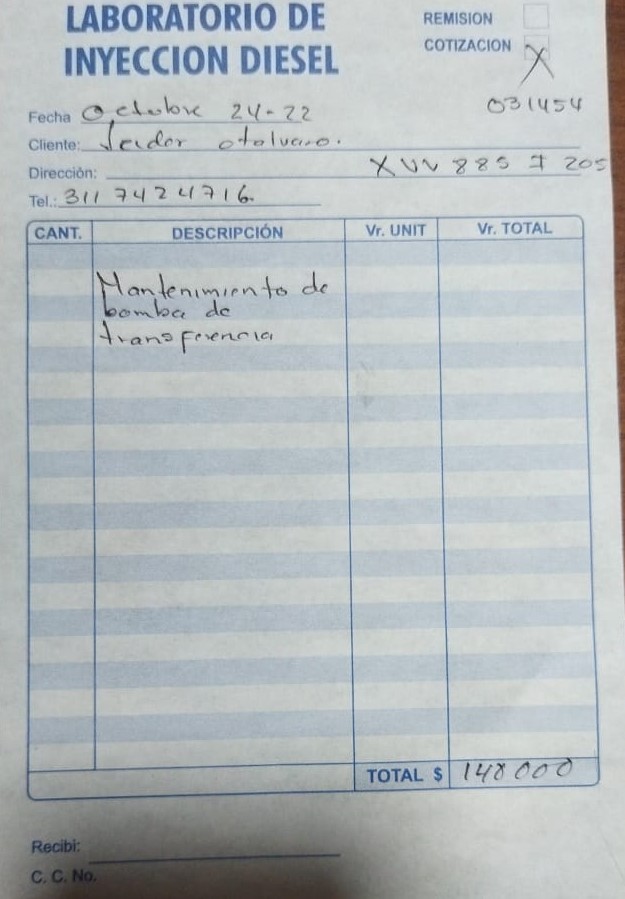 LABORATORIO DE
INYECCION DIESEL
REMISION
COTIZACION X
031454
Fecha Octubre 24-22
Cliente: Jeider otalvaro.
Dirección: XVV 885 # 205
Tel.: 311 7424716
CANT. DESCRIPCIÓN Vr. UNIT Vr. TOTAL
Mantenimiento de
bomba de
transferencia
TOTAL $ 148000
Recibi:
C. C. No.